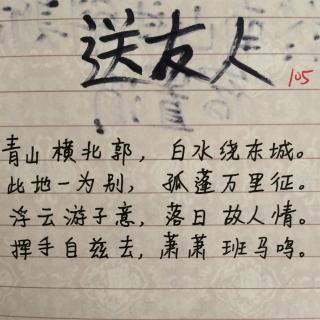 送友人
105
青山横北郭，白水绕东城。
此地一为别，孤蓬万里征。
浮云游子意，落日故人情。
挥手自兹去，萧萧班马鸣。